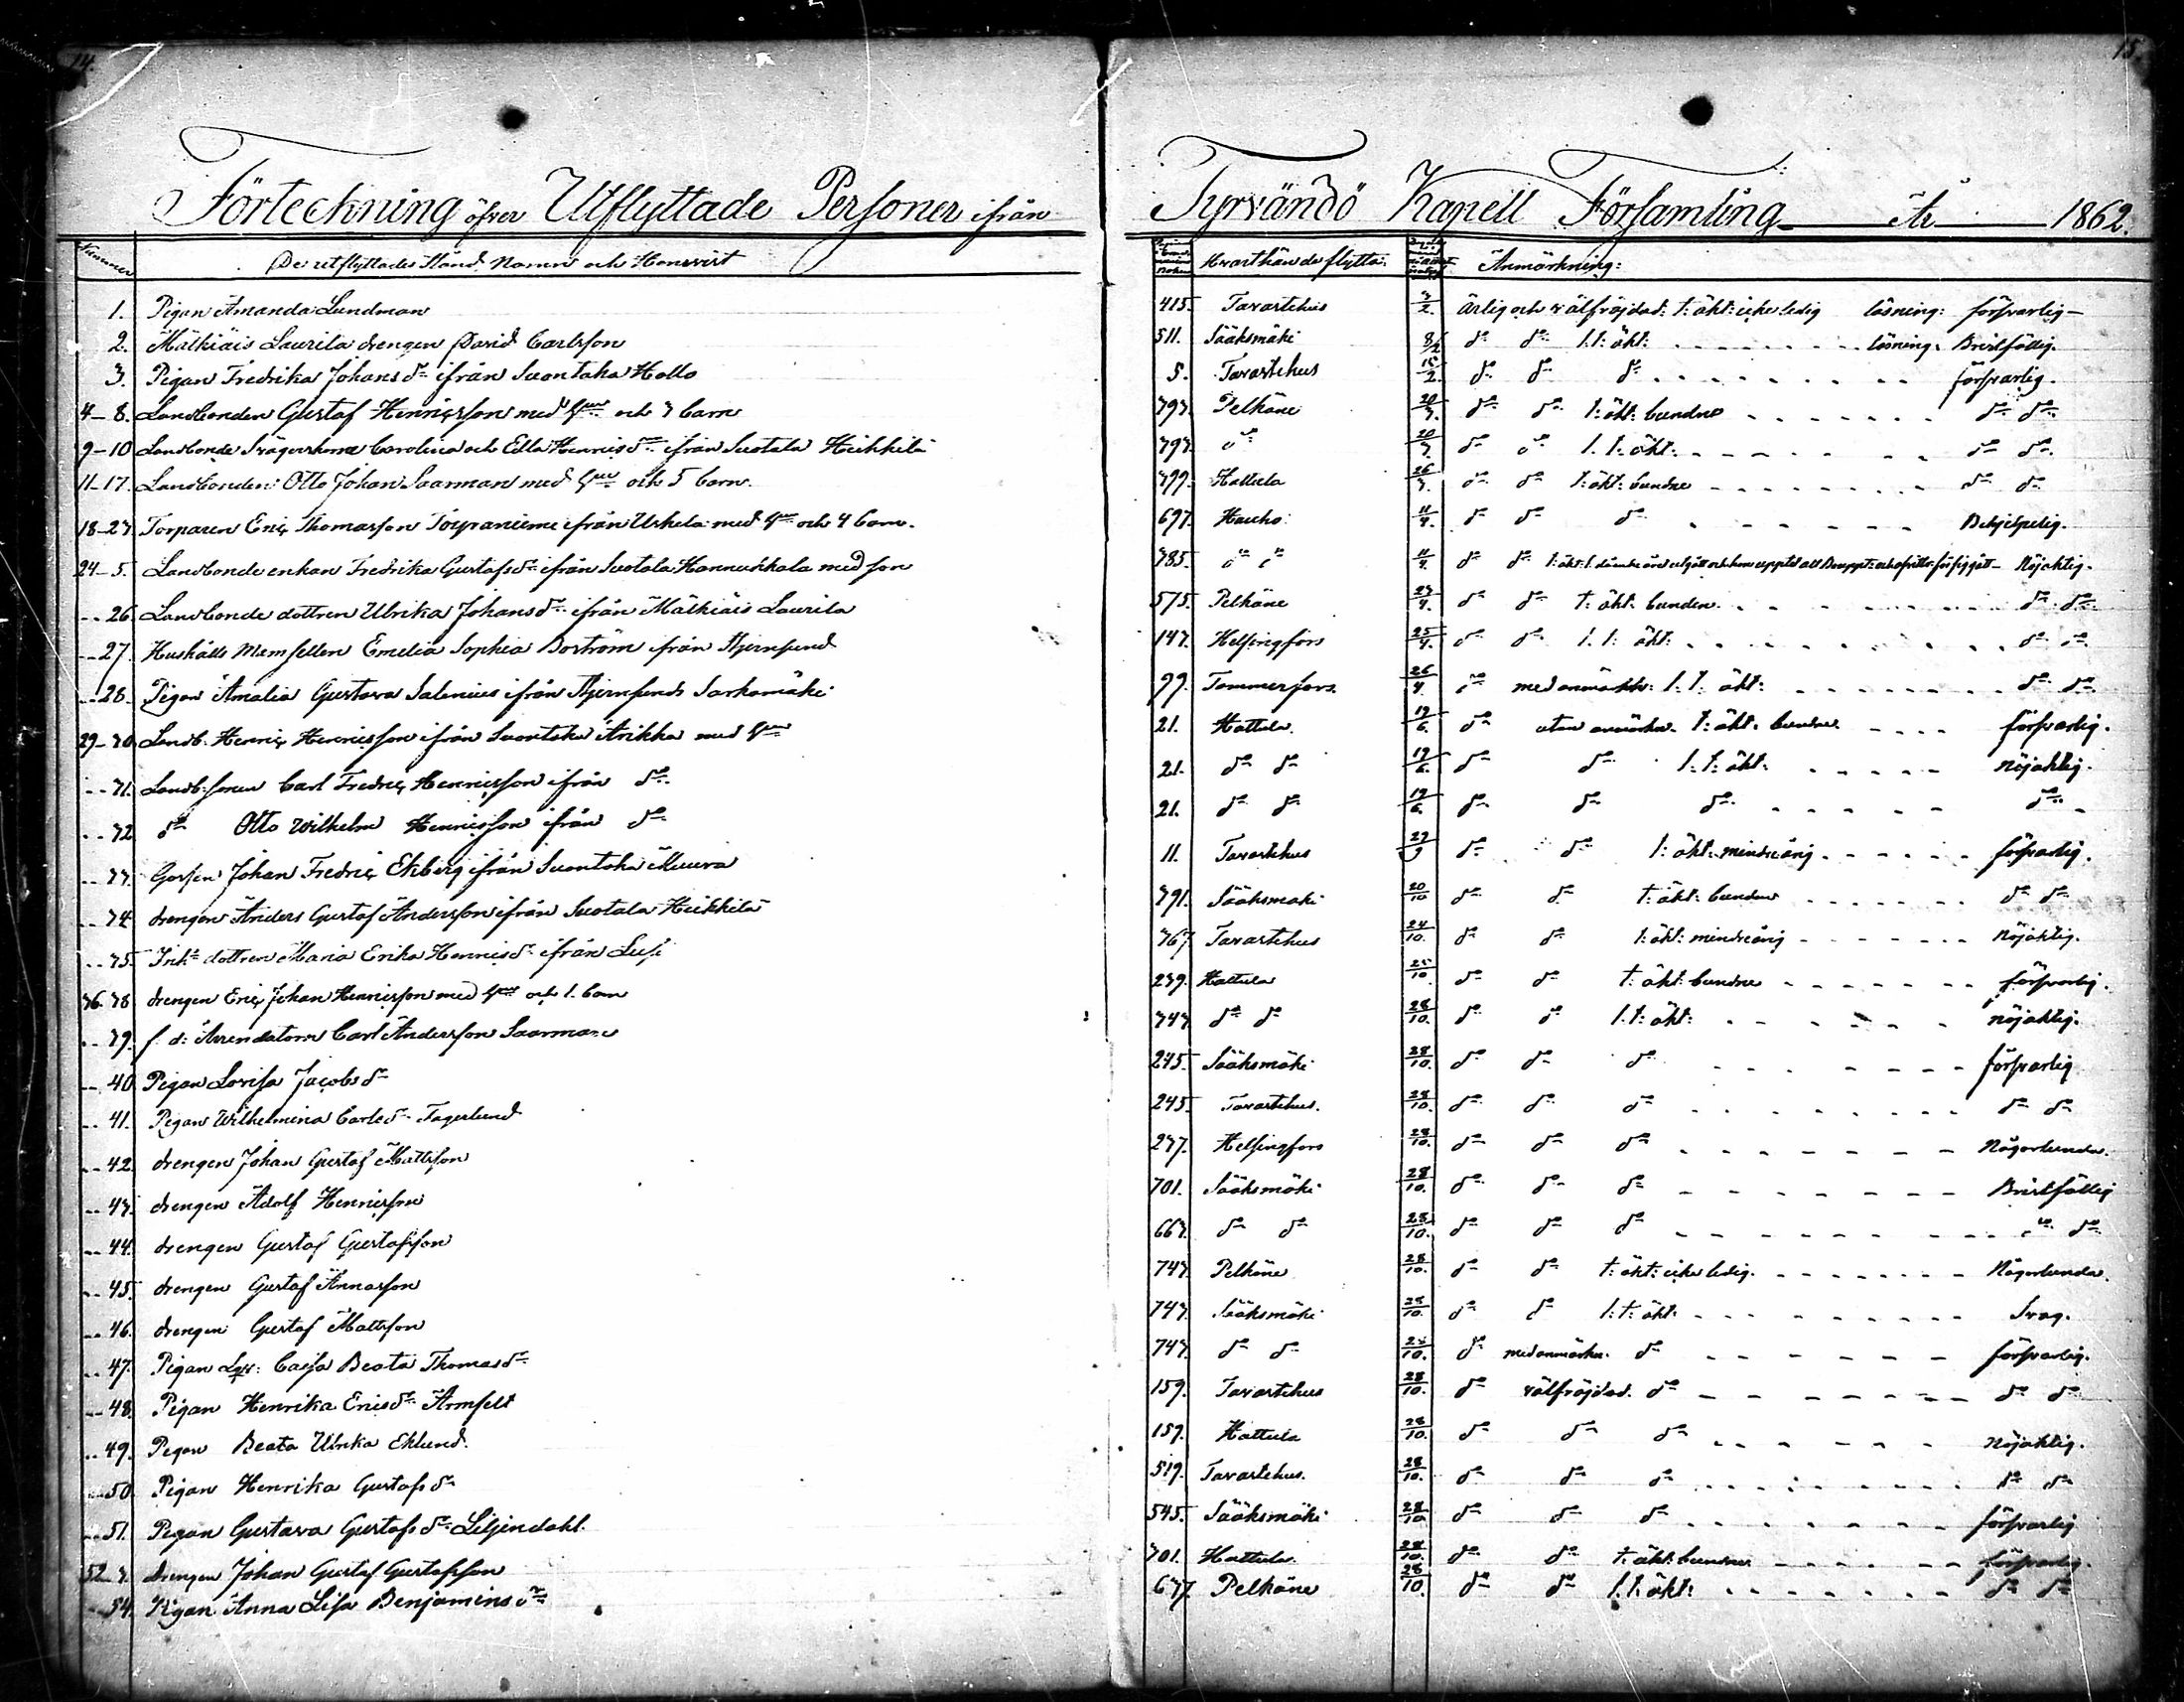 14.
15.
Förteckning öfver Utflyttade Personer ifrån Tyrvändö Kapell Församling År 1862.
Nummer De utflyttades Stånd. Namn och Hemvist Hvarthän de flytta: Anmärkning:
1. Pigan Amanda Lundman 415. Tavastehus 3/2. ärlig och välfräjdad: t: äkt: icke ledig läsning: försvarlig
2. Mälkiäis Laurila drengen David Carlsson 511. Sääksmäki 8/2 do do l. t: äkt: läsning. Bristfällig.
3. Pigan Fredrika Johansdr ifrån Suontaka Hollo 5. Tavastehus 15/2. do do do försvarlig.
4-8. Landbonden Gustaf Henricsson med hu och 3 barn 393. Pelkäne 20/3. do do t: äkt: bunden do do
9-10 Landbonde Svägerskorna Carolina och Edla Henricsdr ifrån Suotala Heikkilä 393. do 20/3. do do l. t: äkt: do do
11-17. Landbonden: Otto Johan Saarman med hu och 5 barn. 399. Hattula 26/3. do do t: äkt: bunden do do
18-23. Torparen Eric Thomasson Torpaniemi ifrån Uskela med hu och 4 barn. 697. Hauho: 11/4. do do do Behjelpelig.
24-5. Landbonde enkan Fredrika Gustafsdr ifrån Suotala Hannukkala med son 385. do do 11/4. do do Nöjaktig.
26. Landbonde dottren Ulrika Johansdr ifrån Mälkiäis Laurila 575. Pelkäne 23/4. do do t: äkt: bunden. do do
27. Hushålls Mamsellen Emelia Sophia Boström ifrån Stjernsund 143. Helsingfors 25/4. do do l. t: äkt: do do
28. Pigan Amalia Gustava Salenius ifrån Stjernsunds Sarkamäki 99. Tammerfors. 26/4. do med anmärkn: l: t: äkt: do do
29-30. Landb: Henric Henricsson ifrån Suontaka Arikka med hu 21. Hattula. 19/6. do utan anmärkn. t: äkt. bunden försvarlig.
31. Landb: sonen Carl Fredric Henricsson ifrån do 21. do do 19/6. do do l: t: äkt: nöjaktig.
32. do Otto Wilhelm Henricsson ifrån do 21. do do 19/6. do do do do
33. Gossen Johan Fredric Ekberg ifrån Suontaka Muura 11. Tavastehus 23/9 do do l: äkt: mindreårig försvarlig.
34. drengen Anders Gustaf Andersson ifrån Suotala Heikkilä 391. Sääksmäki 20/10 do do t: äkt: bunden do do
35. dottren Maria Erika Henricsdr ifrån 367. Tavastehus 24/10. do do l: äkt: mindreårig nöjaktig.
36. 38. drengen Eric Johan Henricsson med hu och 1. barn 239. Hattula 25/10 do do t: äkt: bunden försvarlig.
39. f. d: Arrendatorn Carl Andersson Saarman 343. do do 28/10. do do l. t: äkt: nöjaktig.
40. Pigan Lovisa Jacobsdr 245. Sääksmäki 28/10. do do do försvarlig
41. Pigan Wilhelmina Carlsdr Fagerlund 245. Tavastehus. 28/10. do do do do do
42. drengen Johan Gustaf Mattsson 237. Helsingfors 28/10. do do do Någorlunda.
43. drengen Adolf Henricsson 701. Sääksmäki 28/10. do do do Bristfällig
44. drengen Gustaf Gustafsson 663. do do 28/10. do do do do do
45. drengen Gustaf Annasson 343. Pelkäne 28/10. do do t: äkt: icke ledig. Någorlunda.
46. drengen Gustaf Mattsson 343. Sääksmäki 28/10. do do l: t: äkt: Svag.
47. Pigan Caisa Beata Thomasdr 343. do do 28/10. do med anmärkn. do försvarlig.
48. Pigan Henrika Ericsdr Armfelt 159. Tavastehus 28/10. do välfräjdad. do do do
49. Pigan Beata Ulrika Eklund. 159. Hattula 28/10. do do do nöjaktig.
50. Pigan Henrika Gustafsdr 519. Tavastehus. 28/10. do do do do do
51. Pigan Gustava Gustafsdr Liljendahl. 545. Sääksmäki 28/10 do do do försvarlig
52-3. drengen Johan Gustaf Gustafsson 301. Hattula. 28/10. do do t: äkt: bunden försvarlig.
54. Pigan Anna Lisa Benjaminsdr 637. Pelkäne 28/10. do do l. t: äkt: do do